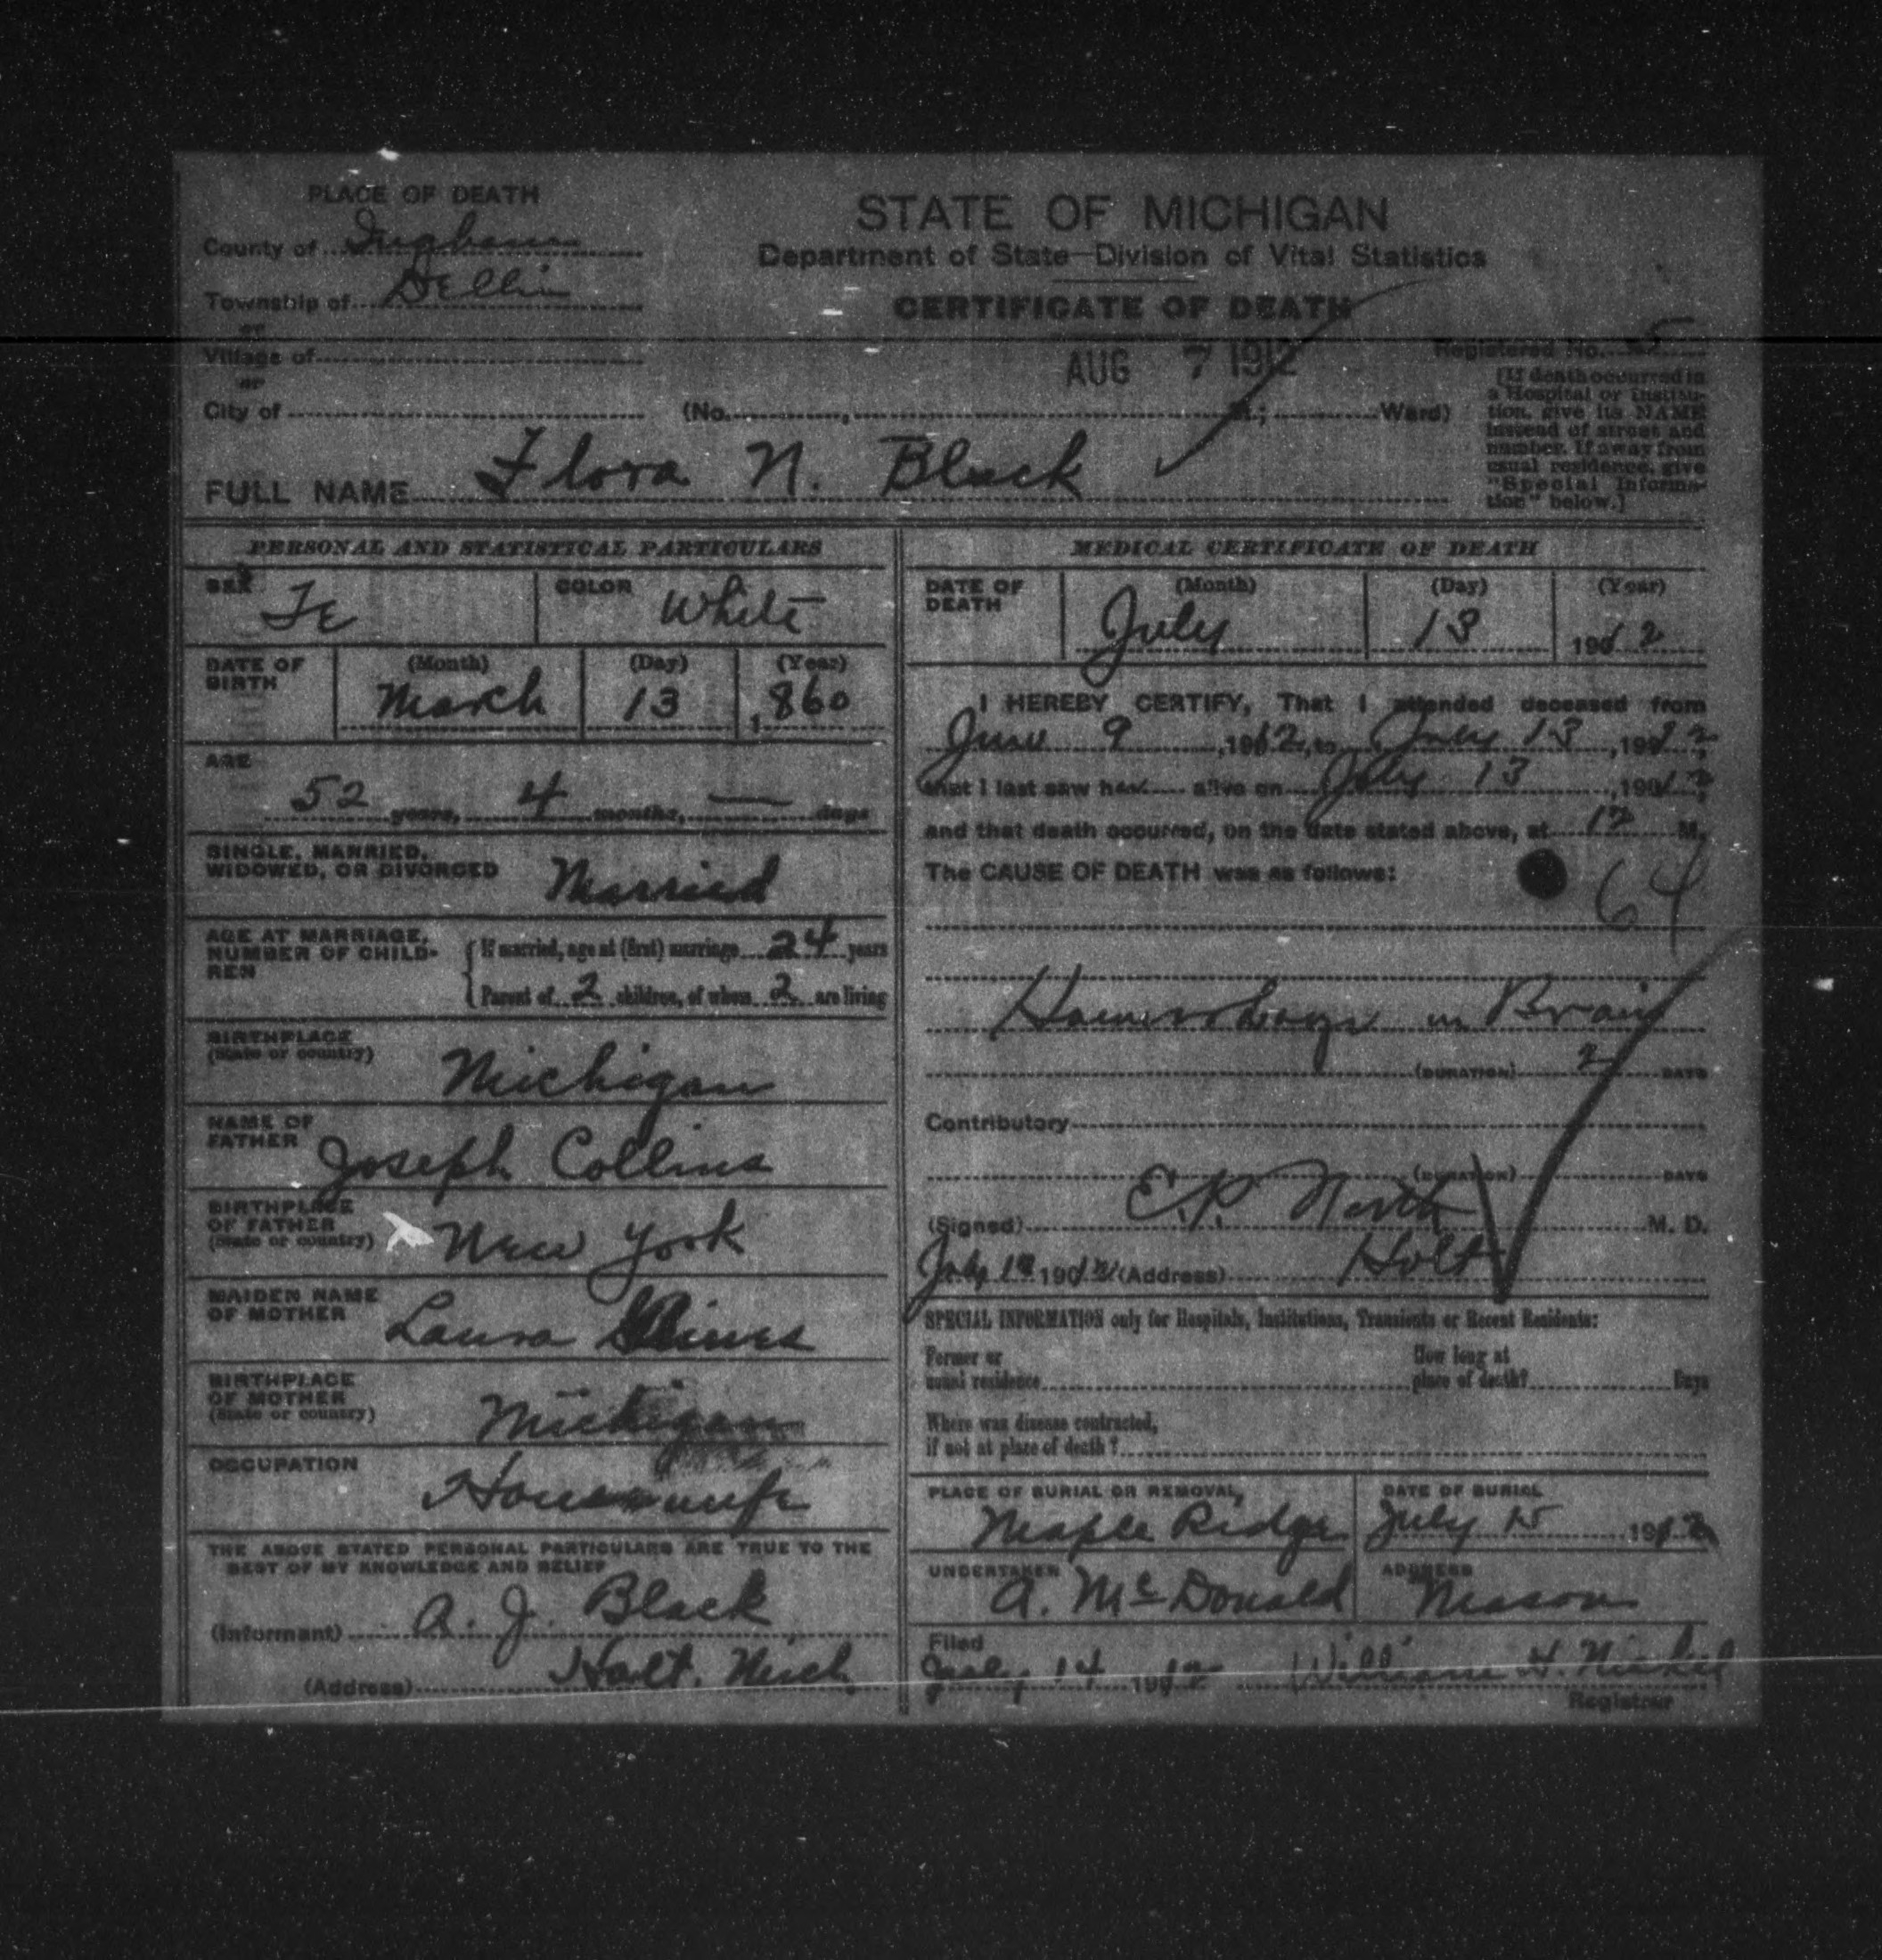 PLACE OF DEATH
County of Ingham
Township of Delhi
or
Village of
or
City of
STATE OF MICHIGAN
Department of State—Division of Vital Statistics
CERTIFICATE OF DEATH
AUG 7 1912
Registered No. 5
(No. , St.; Ward)
[If death occurred in
a Hospital or Institu-
tion, give its NAME
instead of street and
number. If away from
usual residence, give
"Special Informa-
tion" below.]
FULL NAME Flora N. Black
PERSONAL AND STATISTICAL PARTICULARS
SEX Fe COLOR White
DATE OF BIRTH (Month) March (Day) 13 (Year) 1860
AGE
52 years, 4 months, — days
SINGLE, MARRIED,
WIDOWED, OR DIVORCED Married
AGE AT MARRIAGE,
NUMBER OF CHILD-
REN
If married, age at (first) marriage 24 years
Parent of 2 children, of whom 2 are living
BIRTHPLACE
(State or country) Michigan
NAME OF
FATHER Joseph Collins
BIRTHPLACE
OF FATHER
(State or country) New York
MAIDEN NAME
OF MOTHER Laura
BIRTHPLACE
OF MOTHER
(State or country) Michigan
OCCUPATION
Housewife
THE ABOVE STATED PERSONAL PARTICULARS ARE TRUE TO THE
BEST OF MY KNOWLEDGE AND BELIEF
(Informant) A. J. Black
(Address) Holt. Mich
MEDICAL CERTIFICATE OF DEATH
DATE OF DEATH (Month) July (Day) 13 (Year) 1912
I HEREBY CERTIFY, That I attended deceased from
June 9, 1912, to July 13, 1912
that I last saw her alive on July 13, 1912
and that death occurred, on the date stated above, at 12 M.
The CAUSE OF DEATH was as follows:
64
Haemorhage in Brain
(DURATION) 2 DAYS
Contributory
(DURATION) DAYS
(Signed) E.P. North M. D.
July 1912 (Address) Holt
SPECIAL INFORMATION only for Hospitals, Institutions, Transients or Recent Residents:
Former or
usual residence
How long at
place of death? Days
Where was disease contracted,
if not at place of death?
PLACE OF BURIAL OR REMOVAL,
Maple Ridge
DATE OF BURIAL
July 15 1912
UNDERTAKER
A. McDonald
ADDRESS
Mason
Filed
July 14 1912 William H.
Registrar